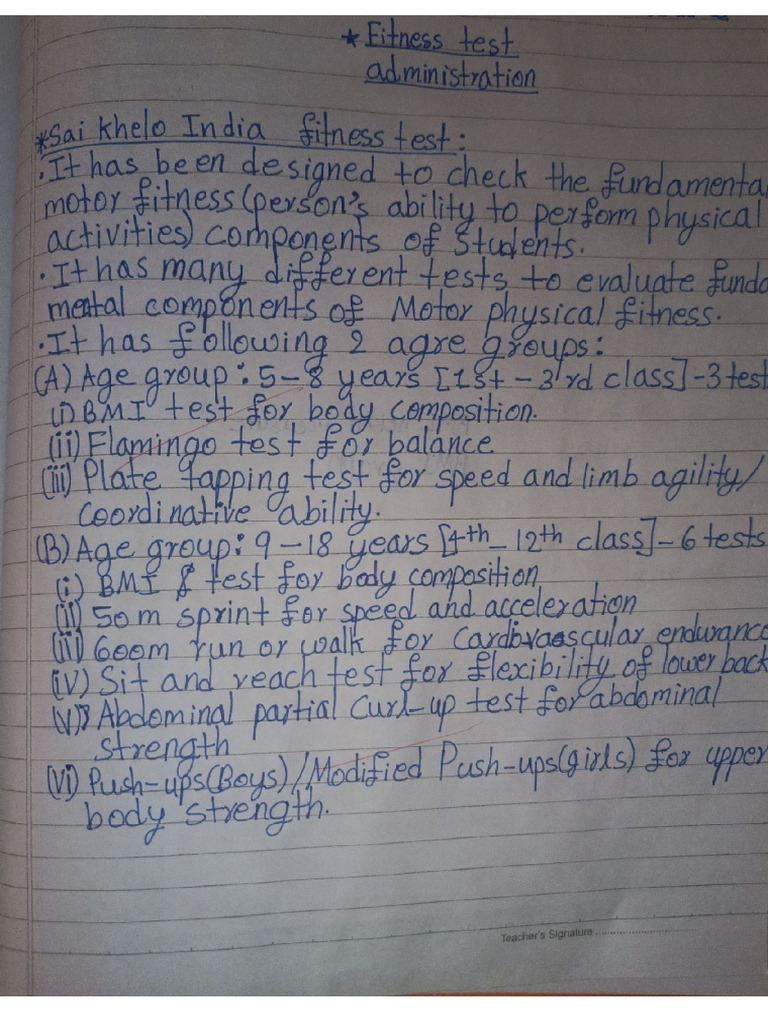 * Fitness test
administration
* Sai Khelo India fitness test:
· It has been designed to check the fundamenta
motor fitness (person's ability to perform physical
activities) components of Students.
· It has many different tests to evaluate funda
mental components of Motor physical fitness.
· It has following 2 agre groups:
(A) Age group: 5-8 years [1st - 3rd class] - 3 test
(i) BMI test for body composition.
(ii) Flamingo test for balance
(iii) Plate tapping test for speed and limb agility/
coordinative ability.
(B) Age group: 9-18 years [4th - 12th class] - 6 tests
(i) BMI & test for body composition
(ii) 50m sprint for speed and acceleration
(iii) 600m run or walk for Cardiovascular endurance
(iv) Sit and reach test for flexibility of lower back
(v) Abdominal partial Curl-up test for abdominal
strength
(vi) Push-ups (Boys) / Modified Push-ups (girls) for upper
body strength.
Teacher's Signature